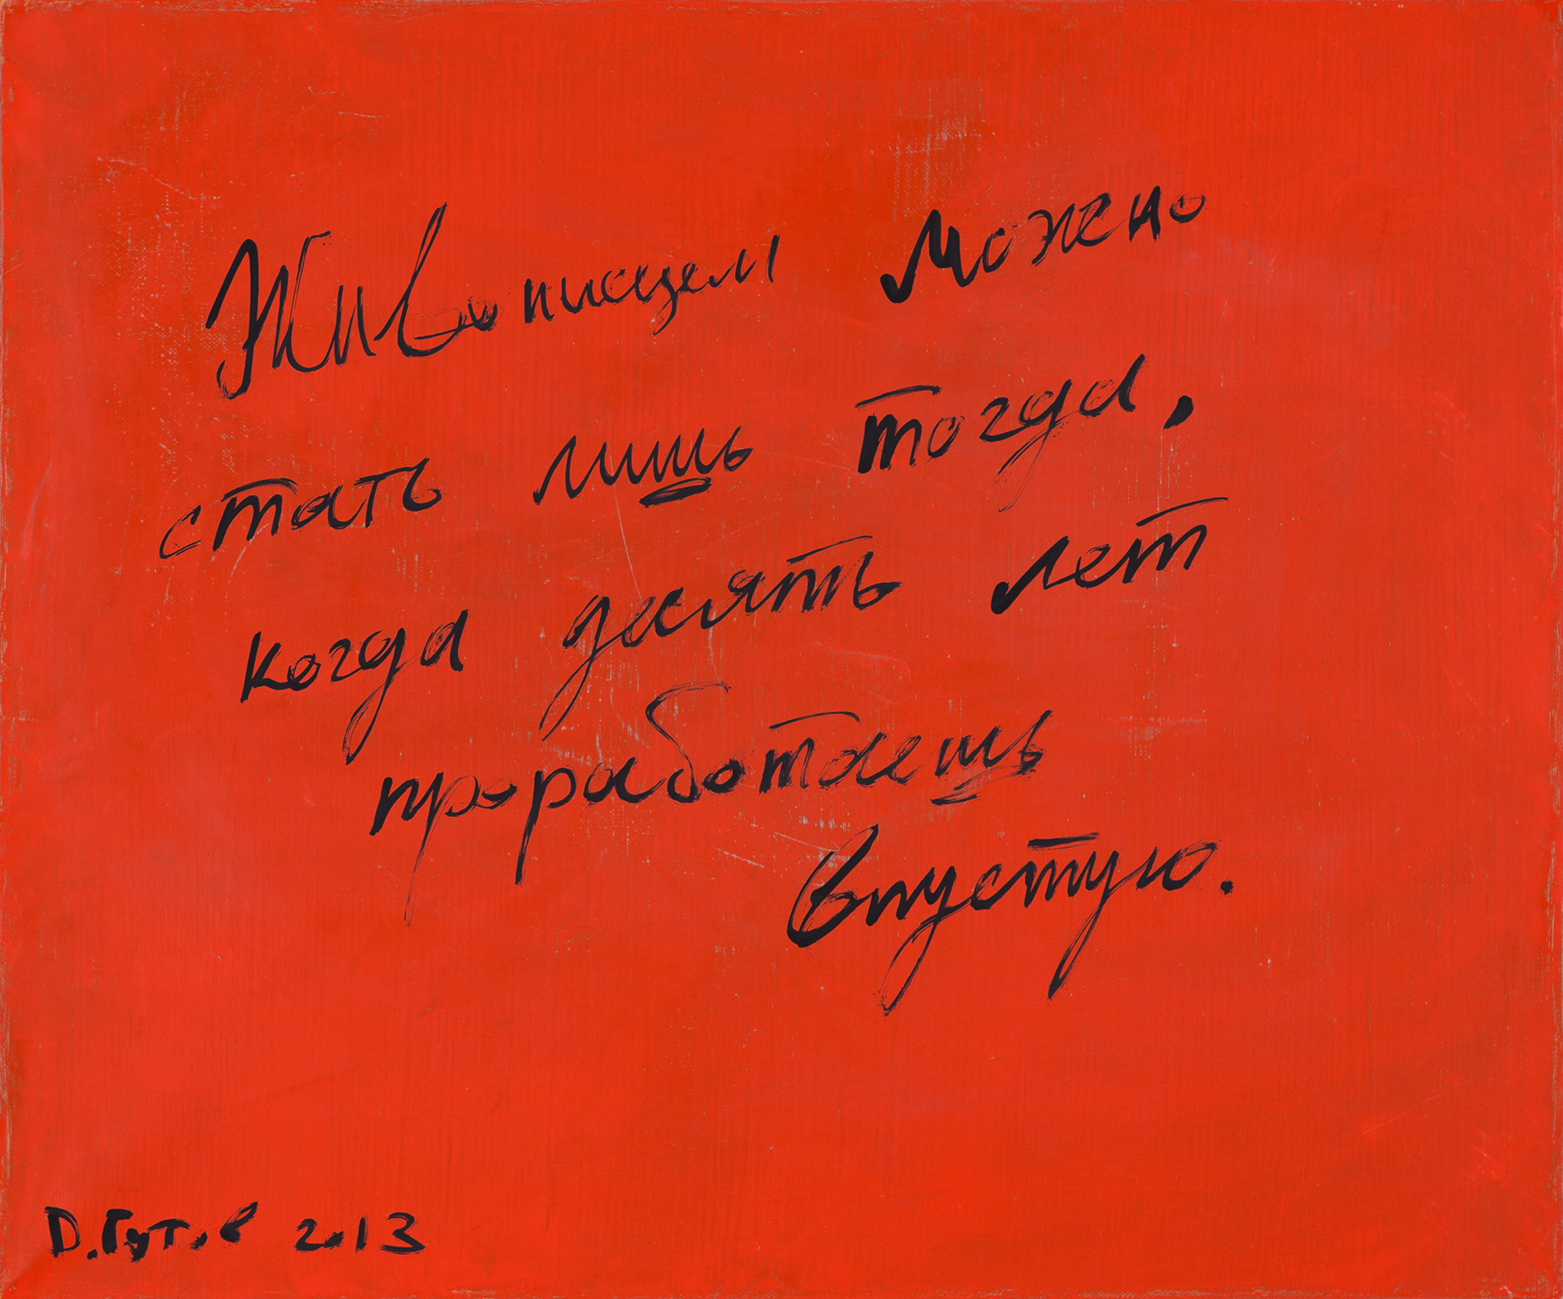 Живописцем можно
стать лишь тогда,
когда десять лет
проработаешь
впустую.
Д. Гутов 2013